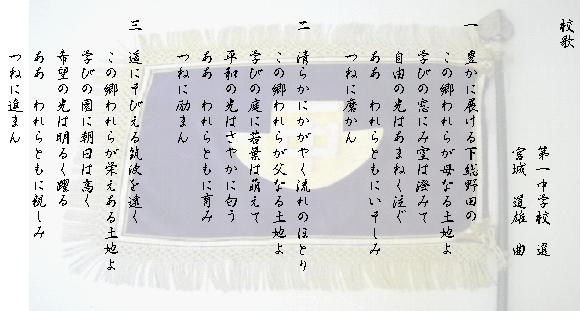 校歌
第一中学校 選
宮城 道雄 曲
一
豊かに展ける下総野田の
この郷われらが母なる土地よ
学びの窓にみ空は澄みて
自由の光はあまねく注ぐ
ああ われらともにいそしみ
つねに磨かん
二
清らかにかがやく流れのほとり
この郷われらが父なる土地よ
学びの庭に若葉は萌えて
平和の光はさやかに匂う
ああ われらともに育み
つねに励まん
三
遥にそびえる筑波を遠く
この郷われらが栄えある土地よ
学びの園に朝日は高く
希望の光は明るく躍る
ああ われらともに親しみ
つねに進まん